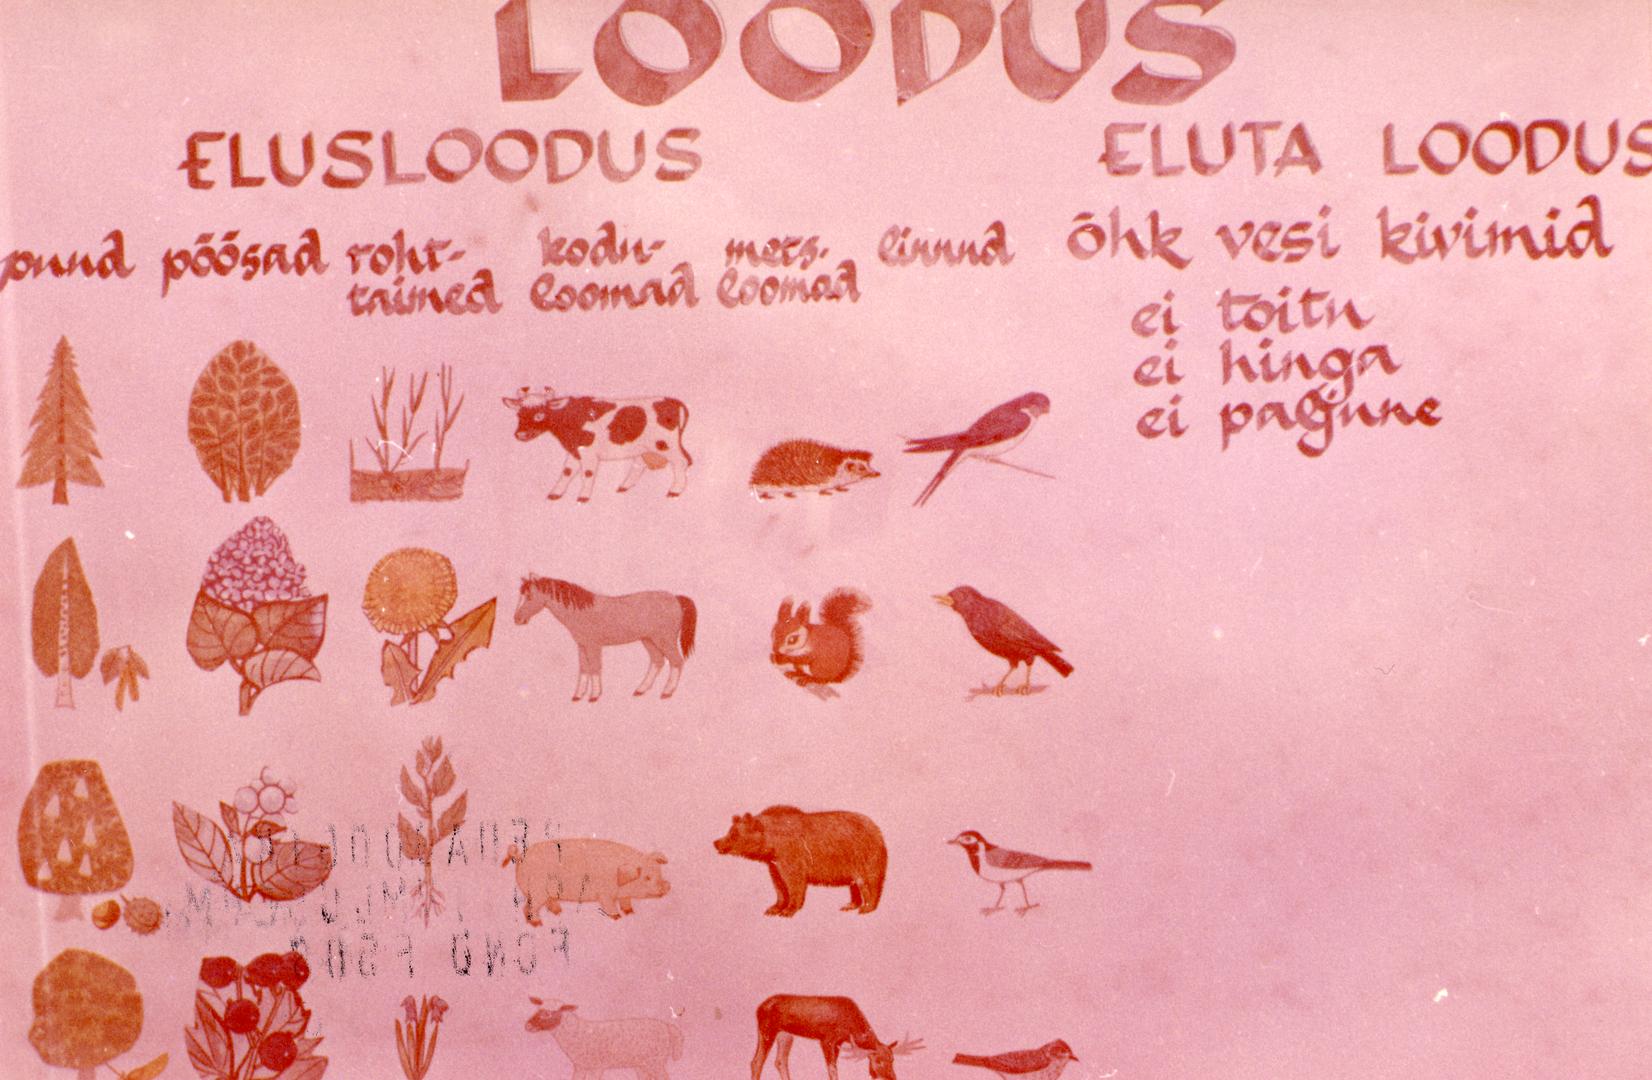 LOODUS
ELUSLOODUS
ELUTA LOODUS
puud põõsad roht-
tained kodu-
loomad mets-
loomad linnud
õhk vesi kivimid
ei toitu
ei hinga
ei paljune